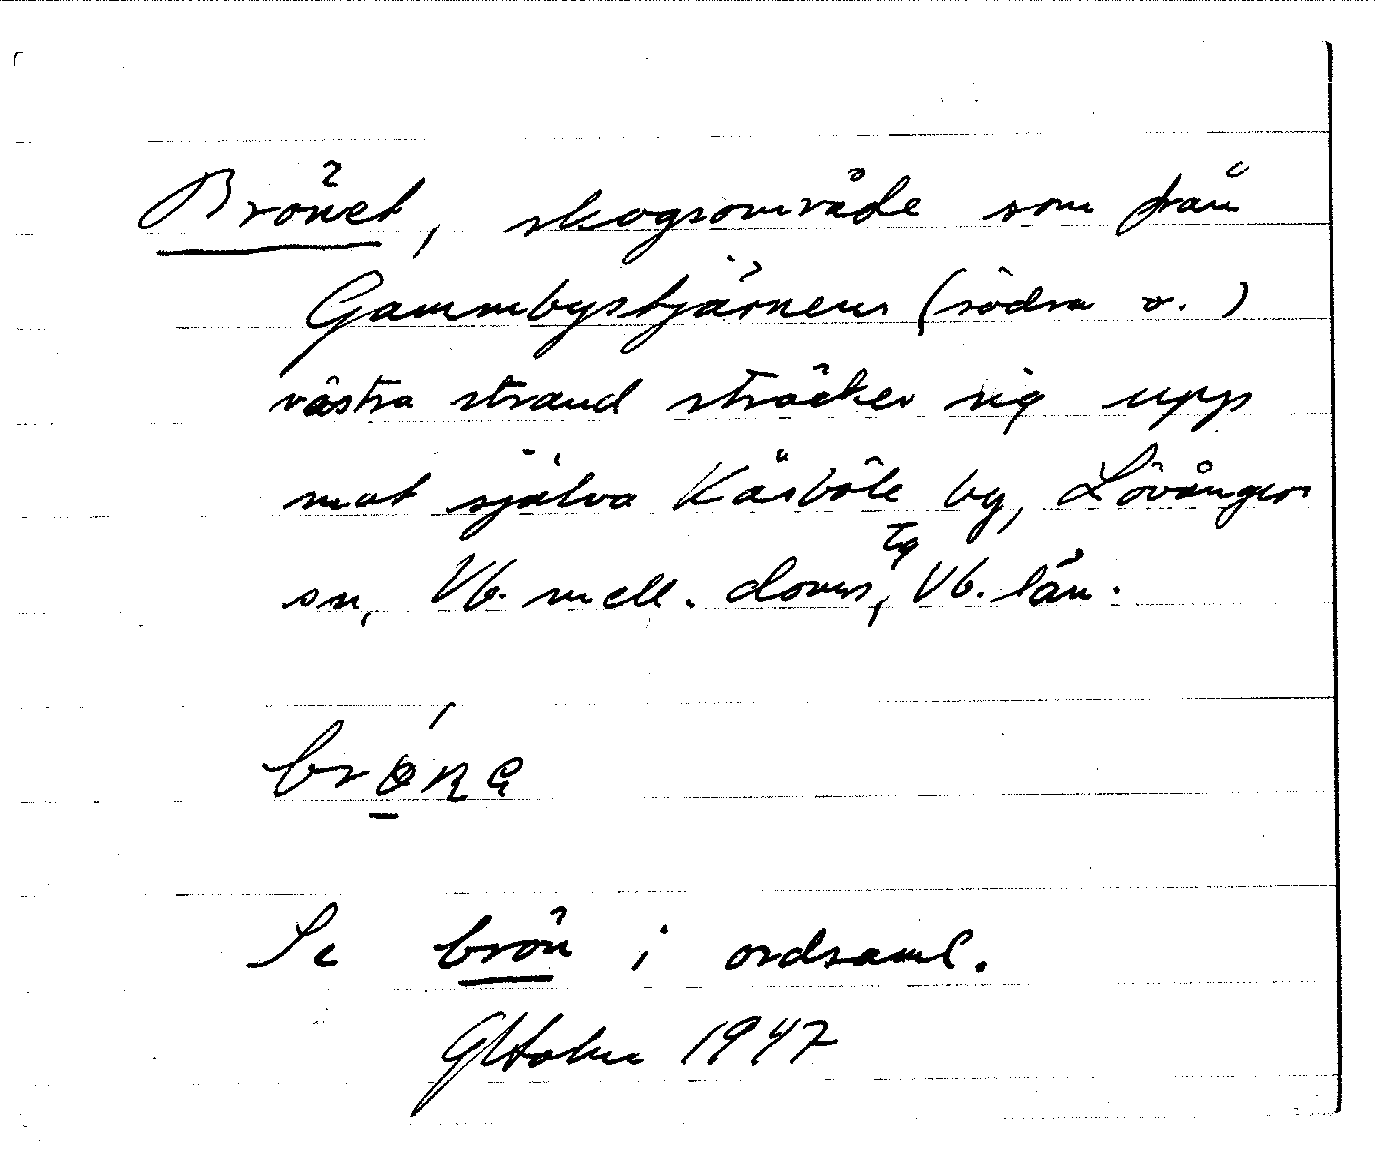 Brönet, skogsområde som från
Gammbystjärnens (södra v.)
västra strand sträcker sig upp
mot själva Kåsböle by, Lövångers
sn, Vb. mell. doms, tg Vb. län.
brönе
Se brön i ordsaml.
GHolm 1947